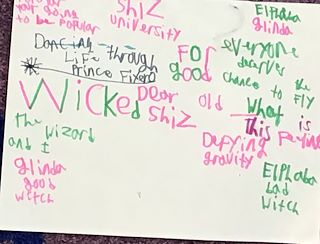 your going
to be Popular
Shiz
university
Elphaba
Glinda
Dancing through
Life
Prince Fixero
For
good
everyone
deserves
chance to the
Fly
Wicked
Dear
old
Shiz
What is
this
Feyling
the Wizard
and I
Glinda
good
Witch
Defying
gravity
Elphaba
bad
Witch